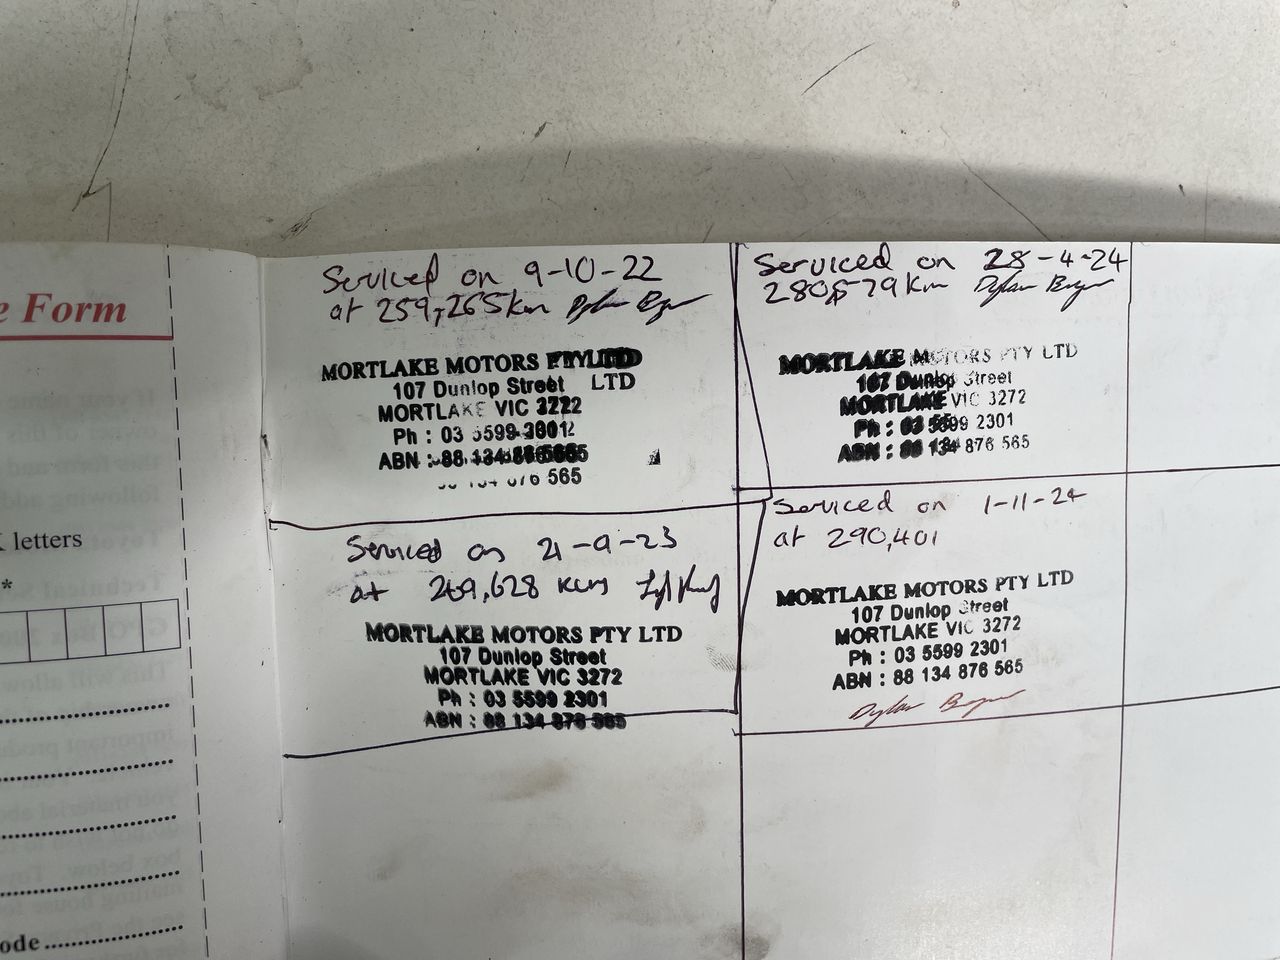 e Form
letters
*
ode
Serviced on 9-10-22
at 259,265km
MORTLAKE MOTORS PTY LTD
107 Dunlop Street LTD
MORTLAKE VIC
Ph : 03 5599
ABN : 88 134
876 565
Serviced on 21-9-23
at 269,628 kms
MORTLAKE MOTORS PTY LTD
107 Dunlop Street
MORTLAKE VIC 3272
Ph : 03 5599 2301
ABN : 88 134 876 565
Serviced on 28-4-24
280,579km Dylan
MORTLAKE MOTORS PTY LTD
107 Dunlop Street
MORTLAKE VIC 3272
Ph : 03 5599 2301
ABN : 88 134 876 565
Serviced on 1-11-24
at 290,401
MORTLAKE MOTORS PTY LTD
107 Dunlop Street
MORTLAKE VIC 3272
Ph : 03 5599 2301
ABN : 88 134 876 565
Dylan